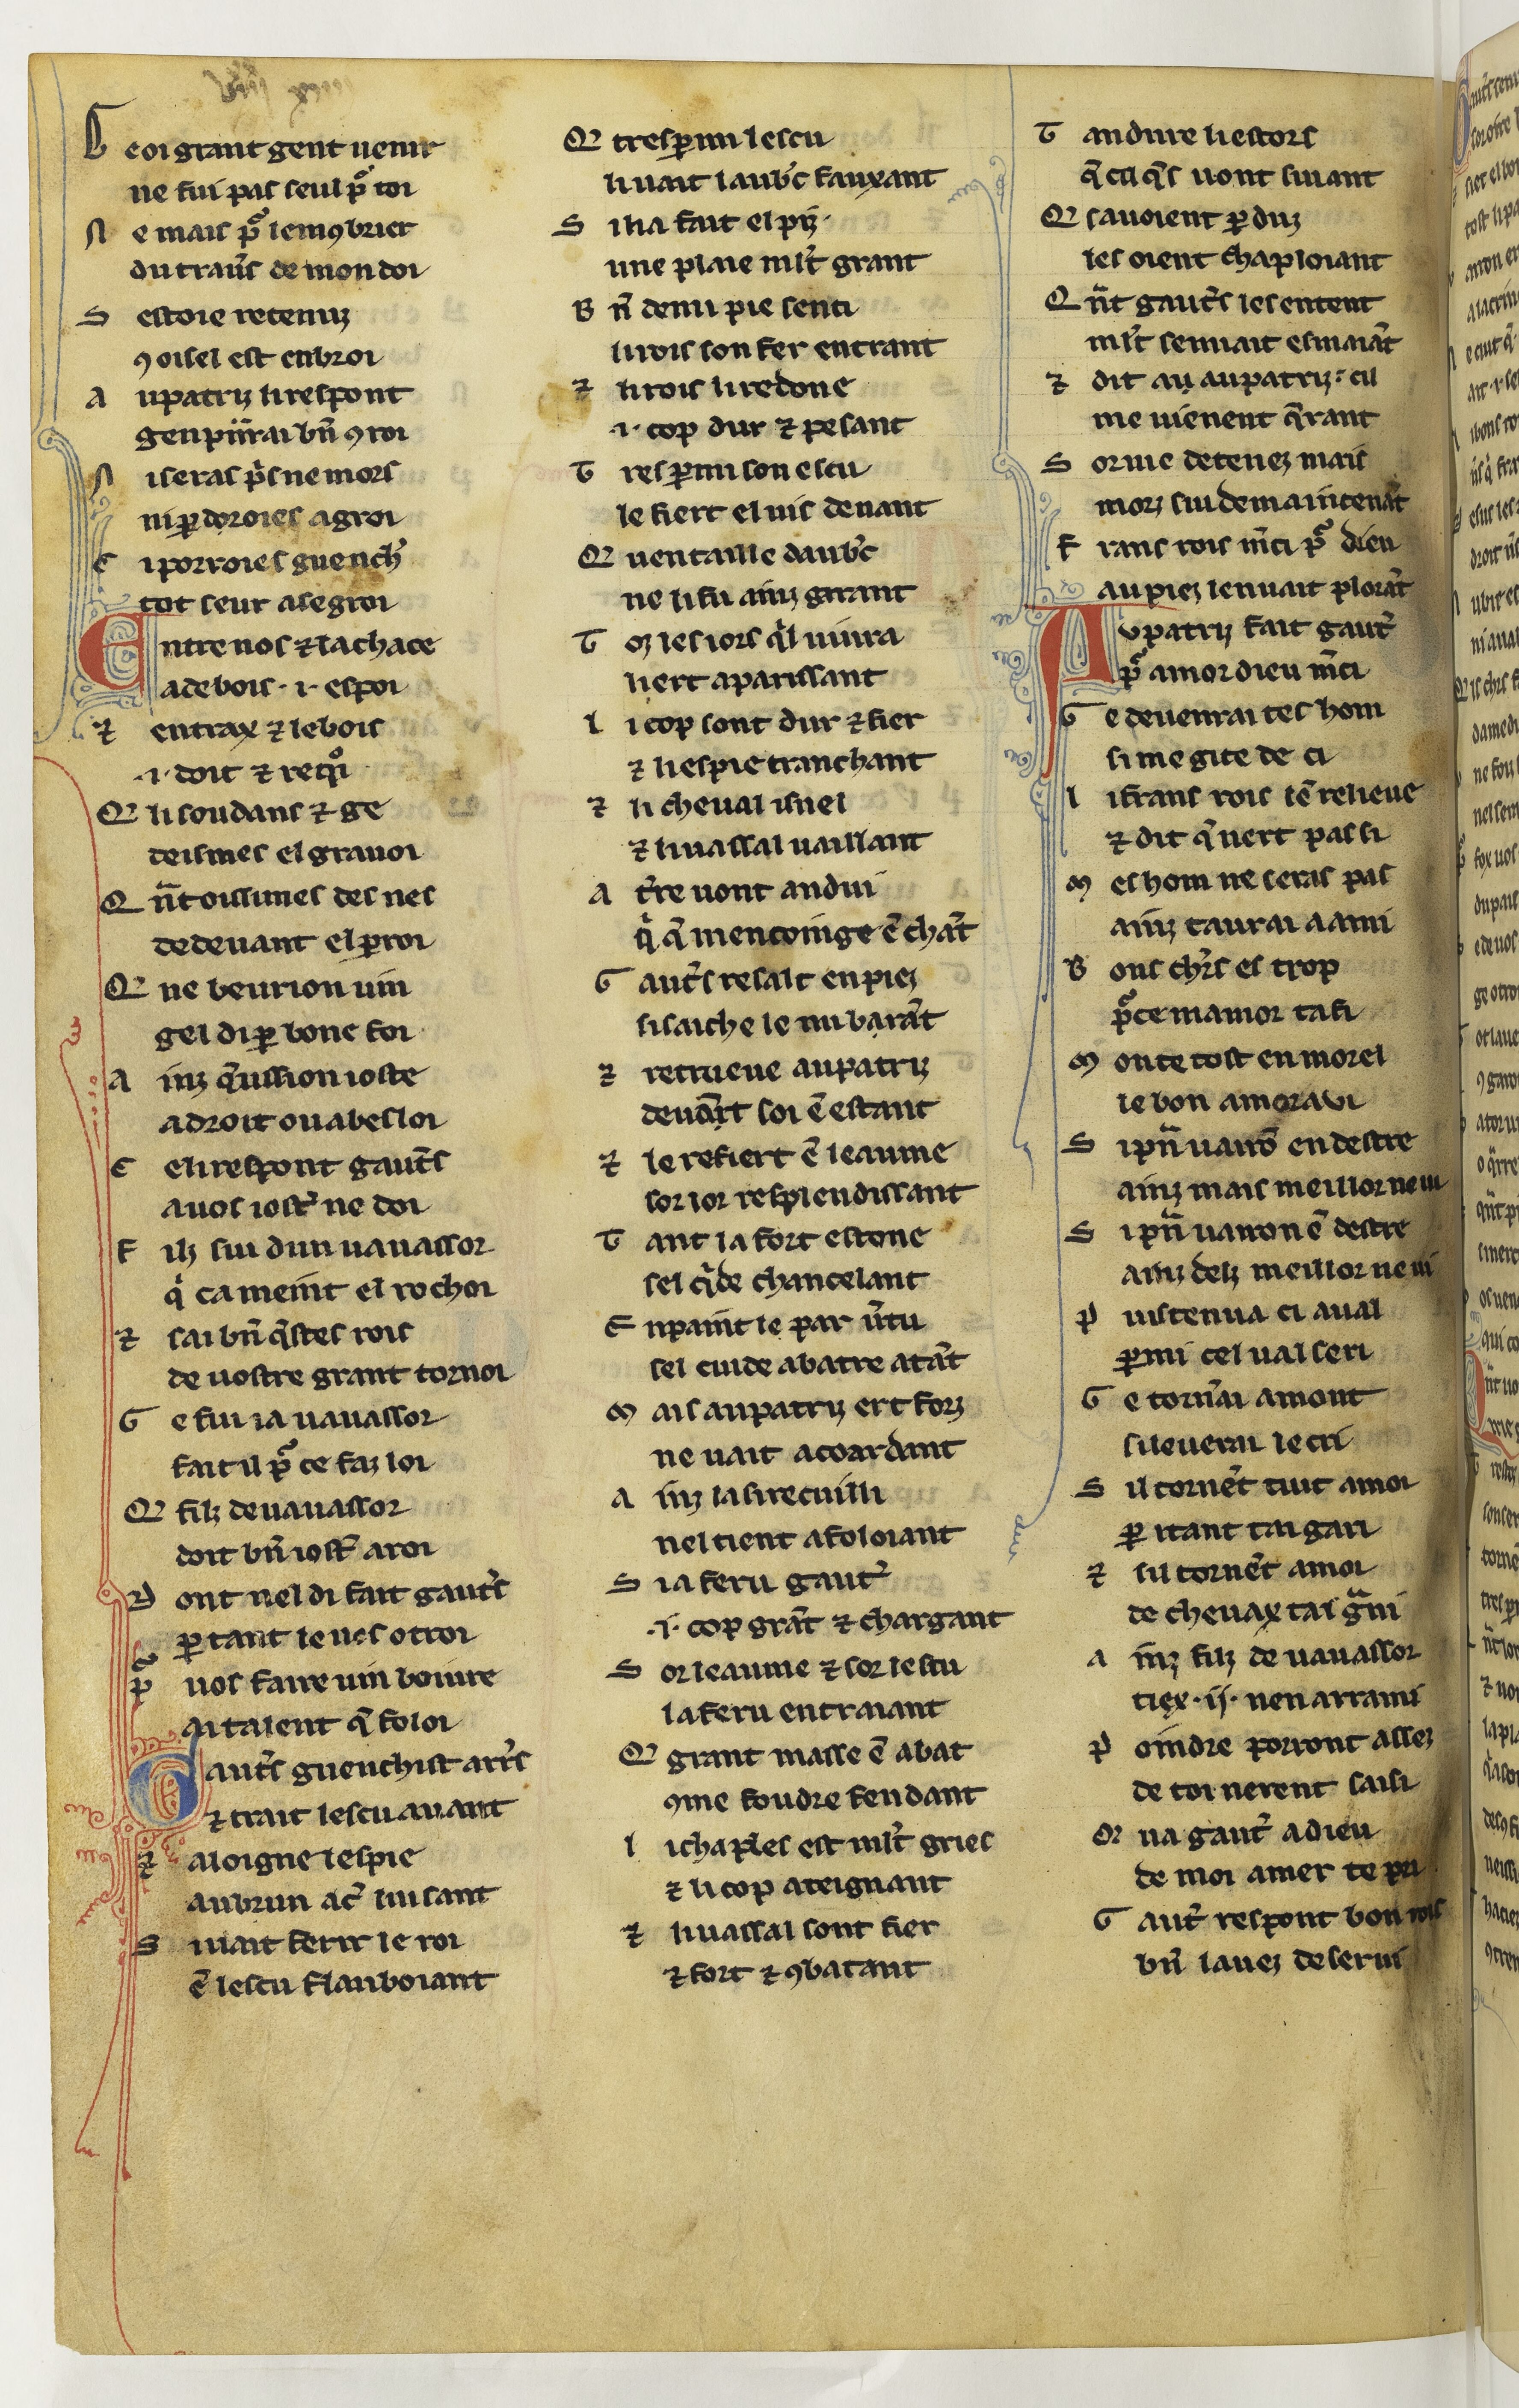 L eoi grant gent uenir
ne fui pas seul p̃ toi
N e mais p̃ iemꝯbrier
du trau̾s de mon doi
S estoie retenuz
ꝯ oisel est enbroi
A upatriz li respont
gen pñrai bñ ꝯroi
N i seras pͥs ne mors
ni ꝑdoroies agroi
E i porroies guench̾
tot seur a segroi
E ntre nos ⁊ la chace
a de bois · i · espoi
⁊ entrax ⁊ le bois
· i · doit ⁊ reqͦi
Q li soudans ⁊ ge
deismes el grauoi
Q ñt oissimes des nes
dedeuant el proi
Q ne beurion uin
gel di ꝑ bone foi
A inz q̃ussion ioste
a droit ou a besloi
E eli respont gaut̾s
a uos iost̾ ne doi
F ilz sui dun uauassor
qͥ ca meint el rochoi
⁊ sai bñ q̃stes rois
de uostre grant tornoi
G e fui ia uauassor
fait il p̃ ce faz loi
Q filz de uauassor
doit bñ iost̾ a roi
D ont nel di fait gaut̾s
ꝑ tant le ues otroi
P̃ uos faire uin boiure
ai talent q̃ foloi
G aut̾s guenchist arr̾s
⁊ trait lescu auant
⁊ aloigne lespie
au brun ac̾ luisant
S iuait ferir le roi
ẽ lescu flanboiant
Q tresꝑmi lescu
li uait laub̾c fauxant
S i li a fait el piz ·
une plaie ml̾t grant
B ñ demi pie senti
li rois son fer entrant
⁊ li rois li redone
· i · cop dur ⁊ pesant
T resꝑmi son escu
le fiert el uis deuant
Q uentaille daub̾c
ne li fu ainz garant
T oz les iors qͥl uiura
li ert aparissant
L i cop sont dur ⁊ fier
⁊ li espie tranchant
⁊ li cheual isnel
⁊ li uassal uaillant
A t̾re uont andui
qͥ q̃ mencoinge ẽ chãt
G aut̾s resalt en piez
si saiche le nu barãt
⁊ retrueue aupatriz
deuãt soi ẽ estant
⁊ le refiert ẽ leaume
sor lor resplendissant
T ant la fort estone
sel qͥde chancelant
E npaint le par u̾tu
sel cuide abatre atãt
M ais aupatriz ert forz
ne uait acoardant
A inz la si recuilli
nel tient a foloiant
S i a feru gaut̾
· i · cop grãt ⁊ chargant
S or leaume ⁊ sor lescu
la feru entraiant
Q grant masse ẽ abat
ꝯme foudre fendant
L i chaples est ml̾t gries
⁊ li cop ateignant
⁊ li uassal sont fier
⁊ fort ⁊ ꝯbatant
T andure li estors
q̃ cil q̃s uont siuant
Q sauoient ꝑduz
les oient chaploiant
Q ñt gaut̾s les entent
ml̾t senuait esmaiãt
⁊ dit au aupatriz : cil
me uienent q̃rant
S or me detenez mais
morz sui demaintenãt
F rans rois m̃ci p̃ dieu
au piez lenuait plorãt
A upatriz fait gaut̾
p̃ amor dieu m̃ci
G e deuenrai tes hom
si me gite de ci
L i frans rois lẽ relieue
⁊ dit q̃ niert pas si
M es hom ne seras pas
ainz taurai a ami
B ons ch̾rs es trop
p̃ ce mamor tafi
M onte tost en morel
le bon amoraui
S i pñ uairõ en destre
ainz mais meillor ne ui
S i pñ uairon ẽ destre
ainz delz meillor ne ui
P uis tenua ci aual
ꝑmi cel ual seri
G e torn̾ai amont
si leuerai le cri
S il torn̾et tuit a moi
ꝑ itant tai gari
⁊ sil torn̾et a moi
de cheuax tai g̃ni
A inz filz de uauassor
tiex · ij · nen arrami
P oindre porront assez
de tornerent saisi
Or ua gaut̾ a dieu
de moi amer te pri
G aut̾ respont bon rois
bñ lauez deserui